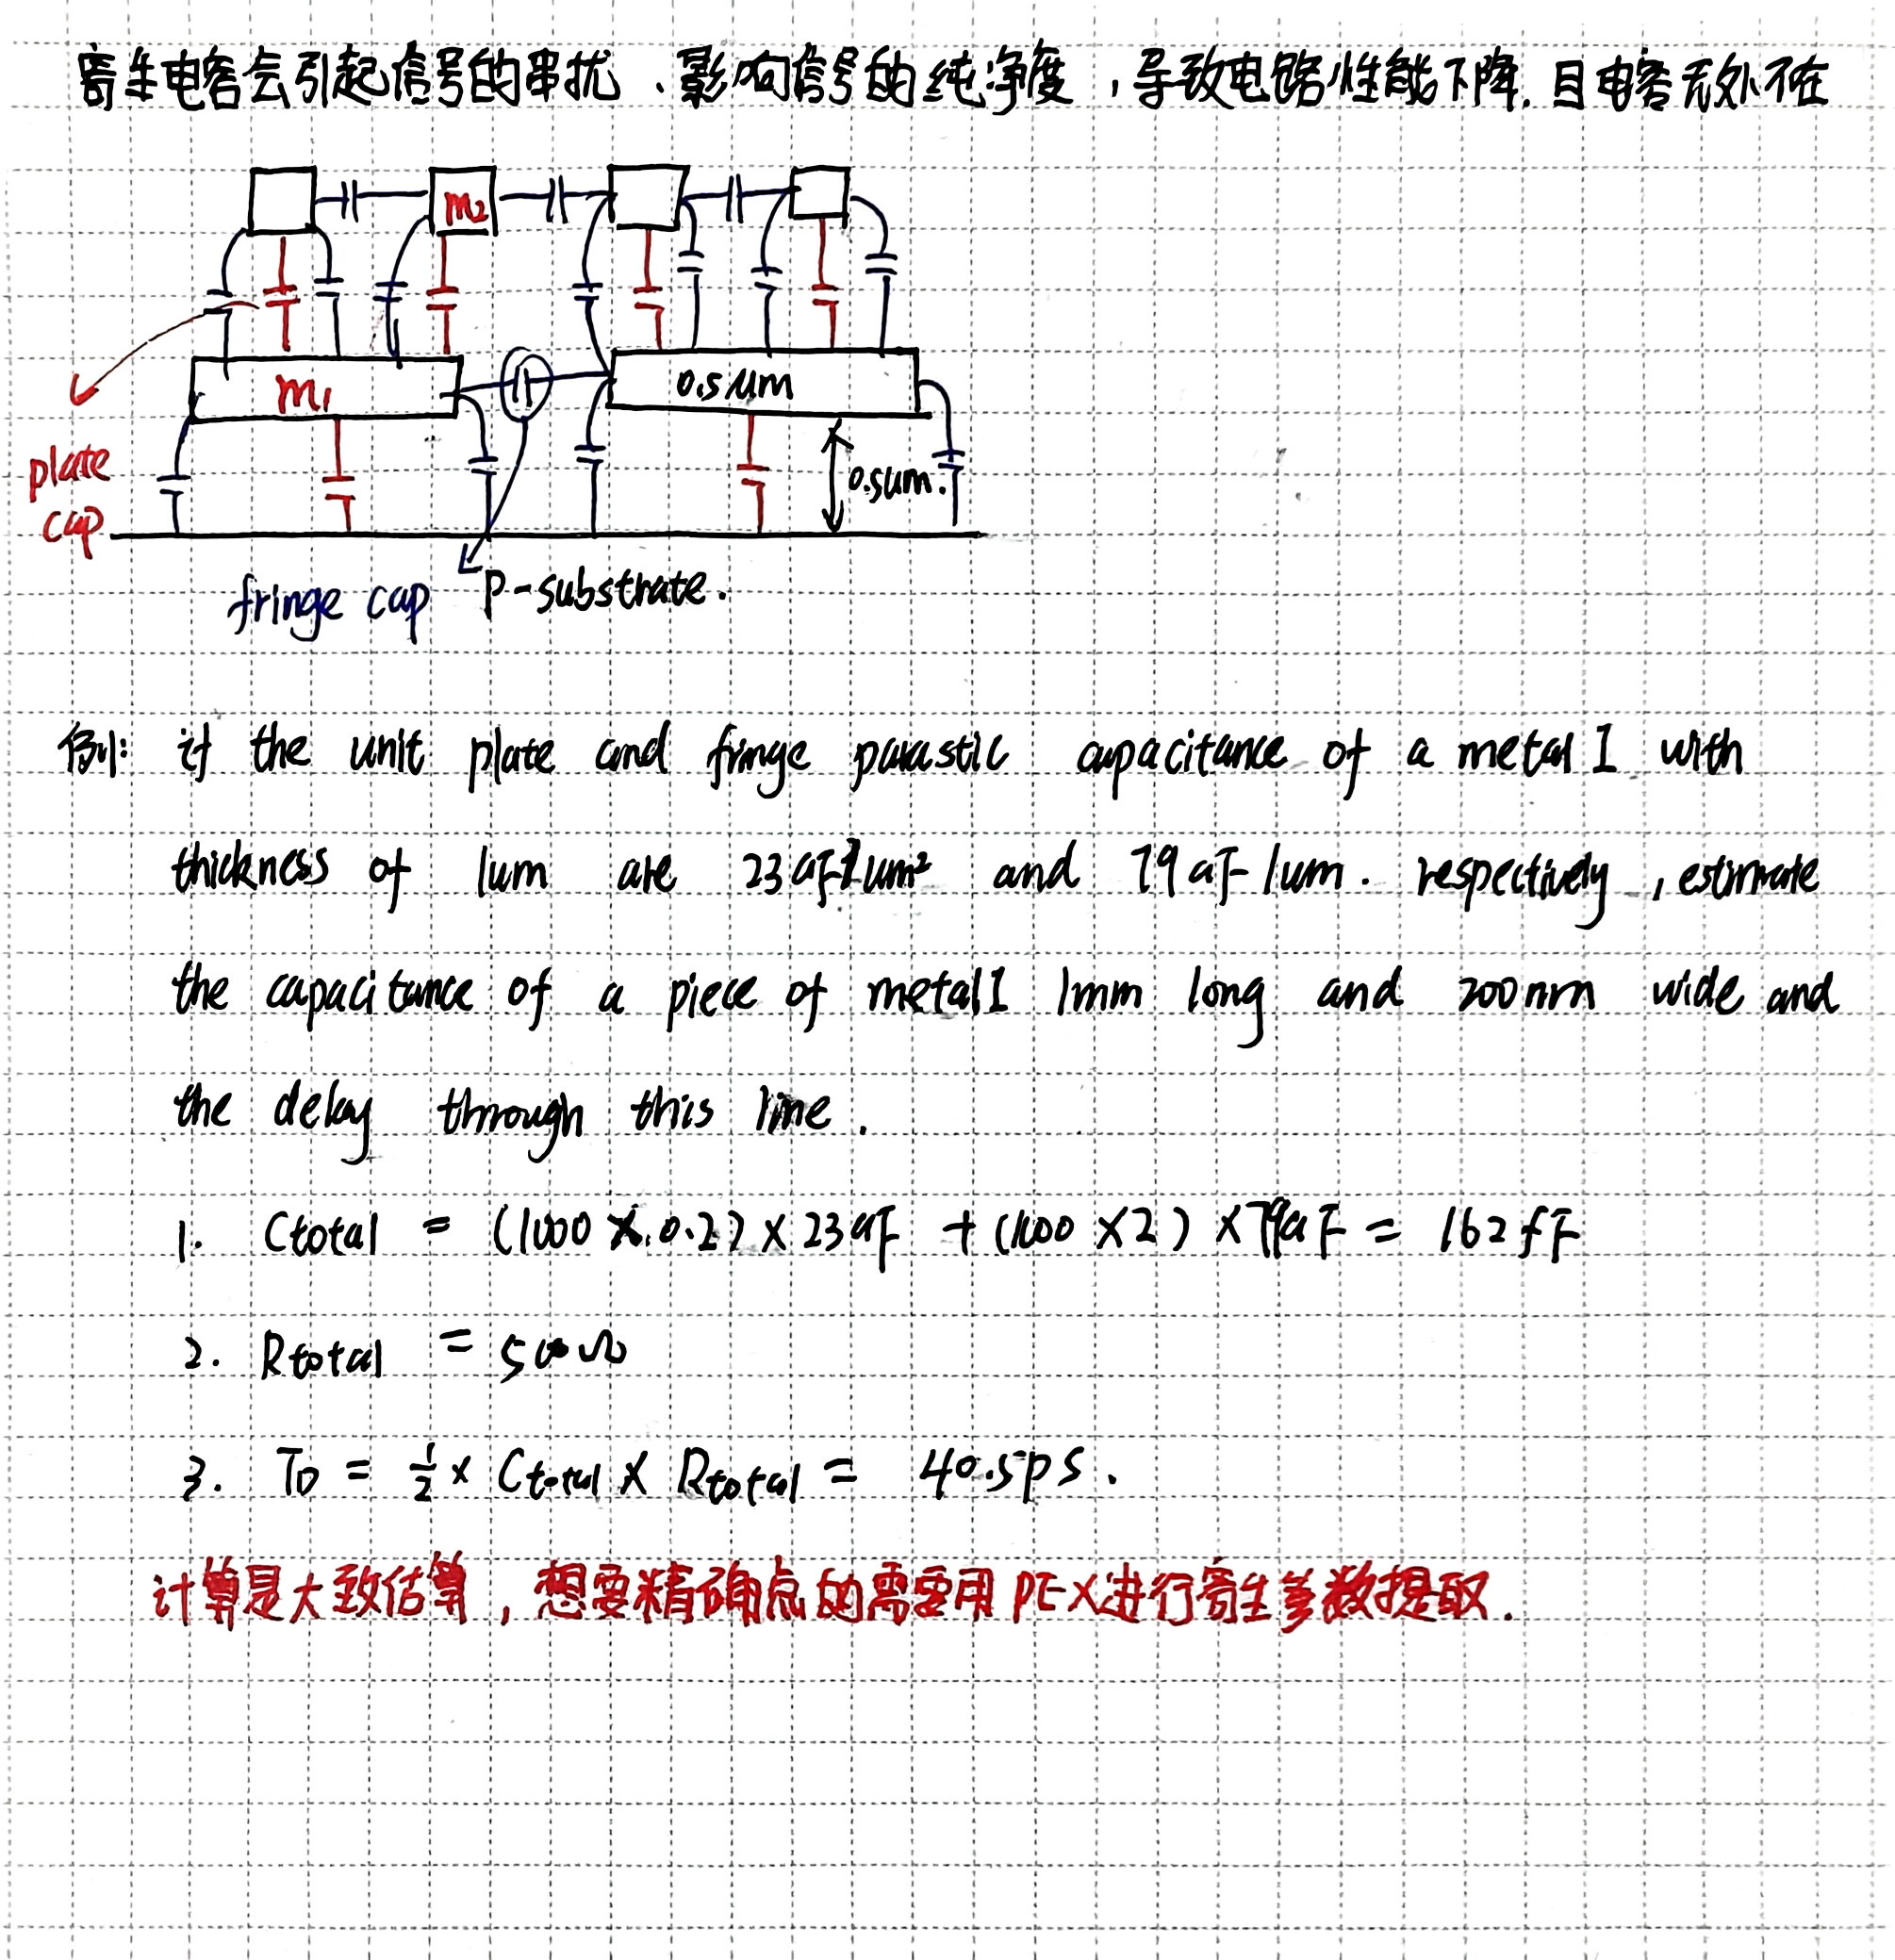 寄生电容会引起信号的串扰、影响信号的纯净度，导致电路性能下降. 且电容无处不在
m2
m1
0.5um
plate
cap
0.5um.
fringe cap P-substrate.
例: if the unit plate and fringe parastic capacitance of a metal I with
thickness of 1um are 23aF/um² and 79aF/um. respectively, estimate
the capacitance of a piece of metal I 1mm long and 200nm wide and
the delay through this line.
1. Ctotal = (1000 × 0.2) × 23aF + (1000 × 2) × 79aF = 162fF
2. Rtotal = 500Ω
3. TD = 1/2 × Ctotal × Rtotal = 40.5ps.
计算是大致估算，想要精确点的需要用PEX进行寄生参数提取.